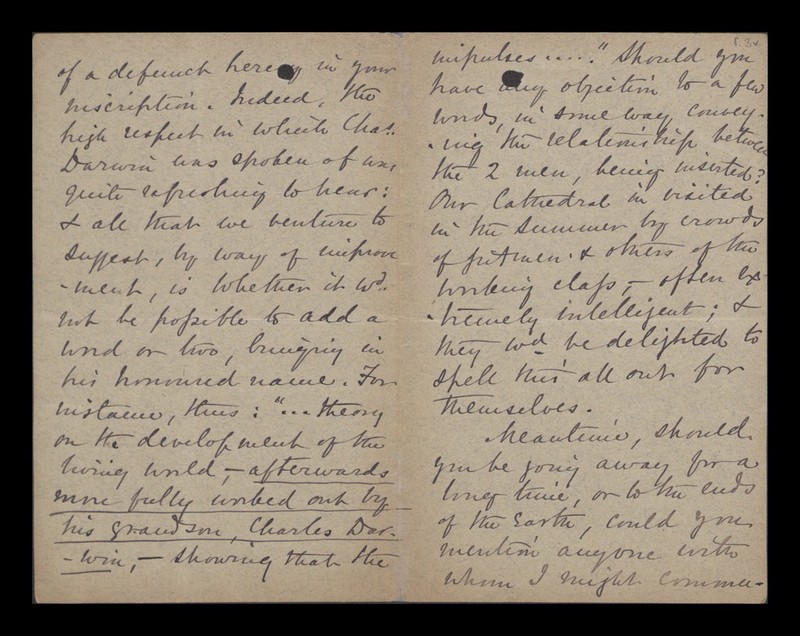 of a defence of heresy in your
inscription. Indeed, the
high respect in which Chas.
Darwin was spoken of was
quite refreshing to hear:
& all that we venture to
suggest, by way of improve
-ment, is whether it wd.
not be possible to add a
word or two, bringing in
his honoured name. For
instance, thus: "... theory
on the development of the
living world, – afterwards
more fully worked out by
his grandson, Charles Dar-
-win, – showing that the
r. 3v
impulses....." Should you
have any objection to a few
words, in some way, convey-
-ing the relationship between
the 2 men, being inserted?
Our Cathedral is visited
in the Summer by crowds
of pitmen & others of the
working class, – often ex-
-tremely intelligent; &
they wd be delighted to
spell this all out for
themselves.
Meantime, should
you be going away for a
long time, or to the ends
of the Earth, could you
mention anyone with
whom I might commu-